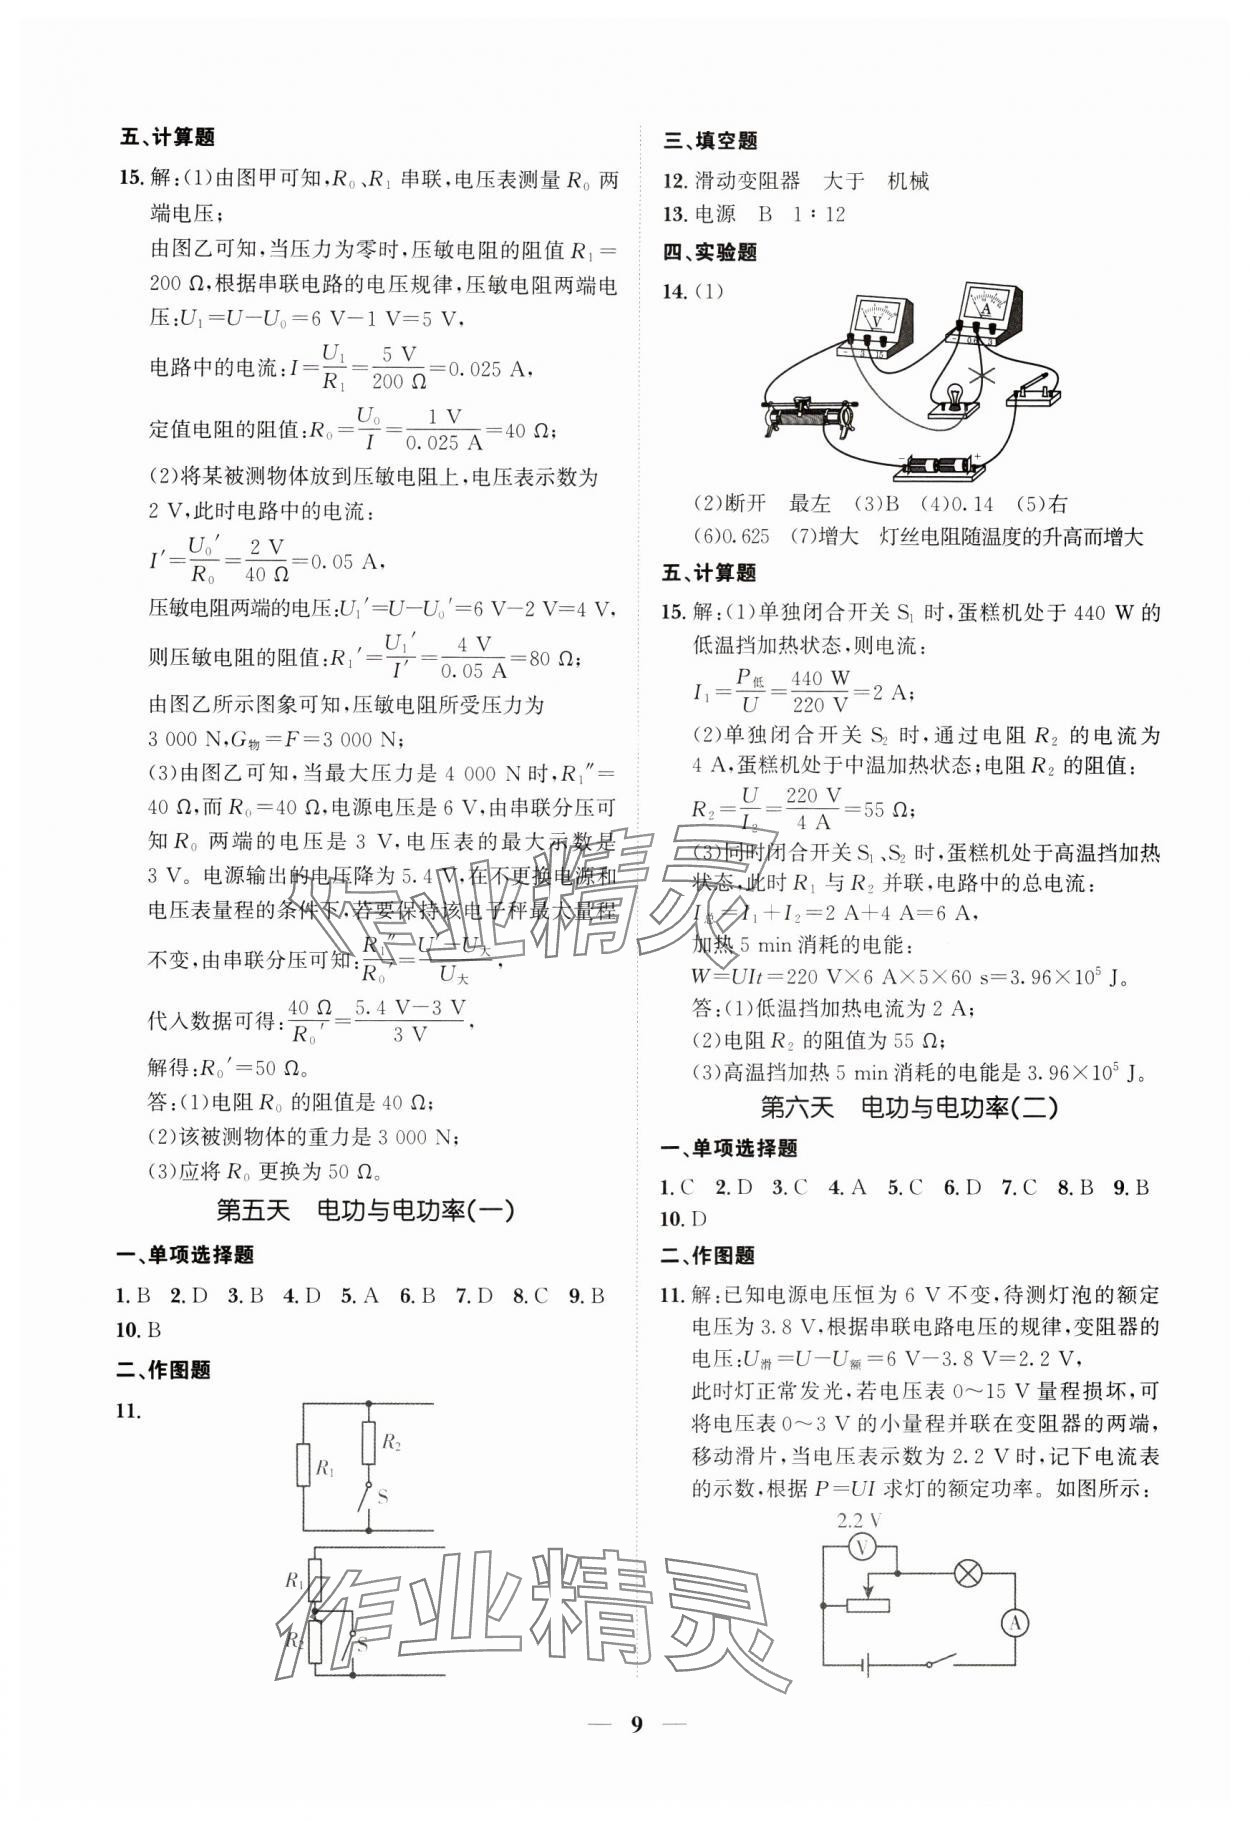 五、计算题
15. 解:(1)由图甲可知,R₀、R₁ 串联,电压表测量 R₀ 两
端电压;
由图乙可知,当压力为零时,压敏电阻的阻值 R₁=
200 Ω,根据串联电路的电压规律,压敏电阻两端电
压:U₁=U-U₀=6 V-1 V=5 V,
电路中的电流:I=U₁/R₁=5 V/200 Ω=0.025 A,
定值电阻的阻值:R₀=U₀/I=1 V/0.025 A=40 Ω;
(2)将某被测物体放到压敏电阻上,电压表示数为
2 V,此时电路中的电流:
I′=U₀′/R₀=2 V/40 Ω=0.05 A,
压敏电阻两端的电压:U₁′=U-U₀′=6 V-2 V=4 V,
则压敏电阻的阻值:R₁′=U₁′/I′=4 V/0.05 A=80 Ω;
由图乙所示图象可知,压敏电阻所受压力为
3 000 N,G物=F=3 000 N;
(3)由图乙可知,当最大压力是 4 000 N 时,R₁″=
40 Ω,而 R₀=40 Ω,电源电压是 6 V,由串联分压可
知 R₀ 两端的电压是 3 V,电压表的最大示数是
3 V。电源输出的电压降为 5.4 V,在不更换电源和
电压表量程的条件下,若要保持该电子秤最大量程
不变,由串联分压可知:R₁″/R₀′=(U′-U大)/U大,
代入数据可得:40 Ω/R₀′=(5.4 V-3 V)/3 V,
解得:R₀′=50 Ω。
答:(1)电阻 R₀ 的阻值是 40 Ω;
(2)该被测物体的重力是 3 000 N;
(3)应将 R₀ 更换为 50 Ω。
第五天 电功与电功率(一)
一、单项选择题
1. B 2. D 3. B 4. D 5. A 6. B 7. D 8. C 9. B
10. B
二、作图题
11.
R₁ R₂ S
R₁ R₂ S
三、填空题
12. 滑动变阻器 大于 机械
13. 电源 B 1∶12
四、实验题
14. (1)
V A
- 3 15 - 0.6 3
- +
(2)断开 最左 (3)B (4)0.14 (5)右
(6)0.625 (7)增大 灯丝电阻随温度的升高而增大
五、计算题
15. 解:(1)单独闭合开关 S₁ 时,蛋糕机处于 440 W 的
低温挡加热状态,则电流:
I₁=P低/U=440 W/220 V=2 A;
(2)单独闭合开关 S₂ 时,通过电阻 R₂ 的电流为
4 A,蛋糕机处于中温加热状态;电阻 R₂ 的阻值:
R₂=U/I₂=220 V/4 A=55 Ω;
(3)同时闭合开关 S₁、S₂ 时,蛋糕机处于高温挡加热
状态,此时 R₁ 与 R₂ 并联,电路中的总电流:
I总=I₁+I₂=2 A+4 A=6 A,
加热 5 min 消耗的电能:
W=UIt=220 V×6 A×5×60 s=3.96×10⁵ J。
答:(1)低温挡加热电流为 2 A;
(2)电阻 R₂ 的阻值为 55 Ω;
(3)高温挡加热 5 min 消耗的电能是 3.96×10⁵ J。
第六天 电功与电功率(二)
一、单项选择题
1. C 2. D 3. C 4. A 5. C 6. D 7. C 8. B 9. B
10. D
二、作图题
11. 解:已知电源电压恒为 6 V 不变,待测灯泡的额定
电压为 3.8 V,根据串联电路电压的规律,变阻器的
电压:U滑=U-U额=6 V-3.8 V=2.2 V,
此时灯正常发光,若电压表 0~15 V 量程损坏,可
将电压表 0~3 V 的小量程并联在变阻器的两端,
移动滑片,当电压表示数为 2.2 V 时,记下电流表
的示数,根据 P=UI 求灯的额定功率。如图所示:
2.2 V
V
A
作业精灵
作业精灵
— 9 —